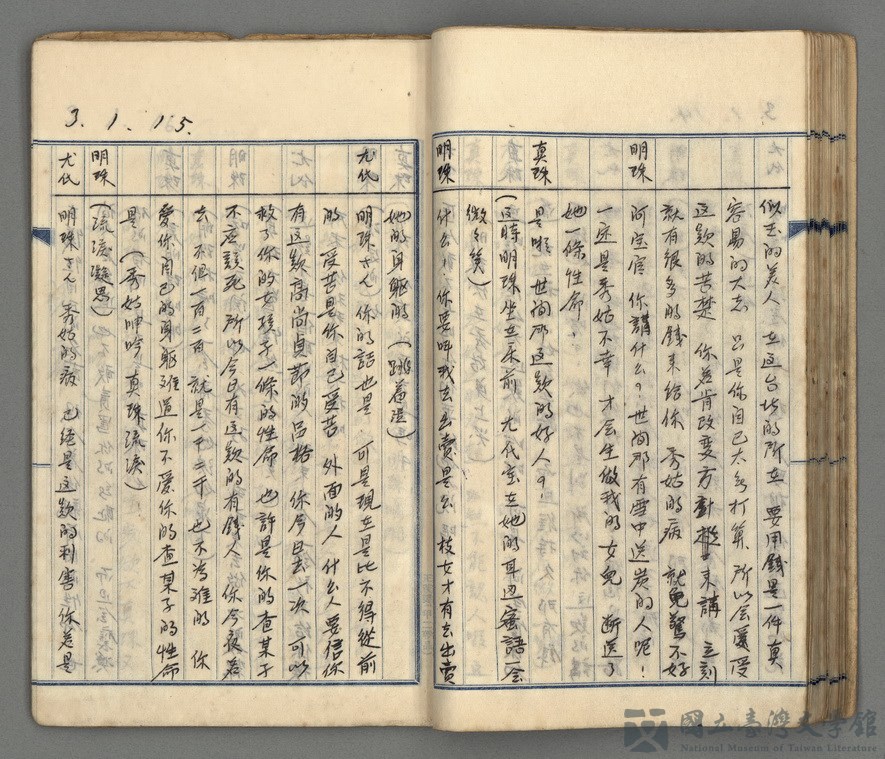 似玉的美人 在這台北的所在 要用錢是一件真
容易的大志 只是你自己太多打算 所以会憂受
這款的苦楚 你若肯改變方針 來講 立刻
就有很多的錢來給你 秀姑的病 就免驚不好
明珠 阿宝官 你講什么？世间那有雪中送炭的人呢！
一定是秀姑不幸 才会生做我的女兒 断送了
她一條性命！
真珠 是啦 世间那這款的好人？！
（這時明珠坐在床前 尤代宝在她的耳边蜜語一会
微々笑）
明珠 什么！你要叫我去出賣是么 枝女才有去出賣
她的身軀的（跳着澁）
尤代（明珠さん）你的話也是 可是現在是比不得從前
的 受苦是你自己受苦 外面的人 什么人要信你
有這款高尚貞節的品格 你今日去一次 可以
救了你的女孩子一條的性命 也許是你的查某子
不应該死 所以今日有這款的有錢人 你今夜若
去 不但一百二百 就是一千二千 也不為难的 你
愛你自己的身軀 难道你不愛你的查某子的性命
是（秀姑呻吟 真珠流淚）
明珠（流淚凝思）
尤代 明珠さん 秀姑的病 已経是這款的利害 你若是
3.1.15.
國立臺灣文學館
National Museum of Taiwan Literature